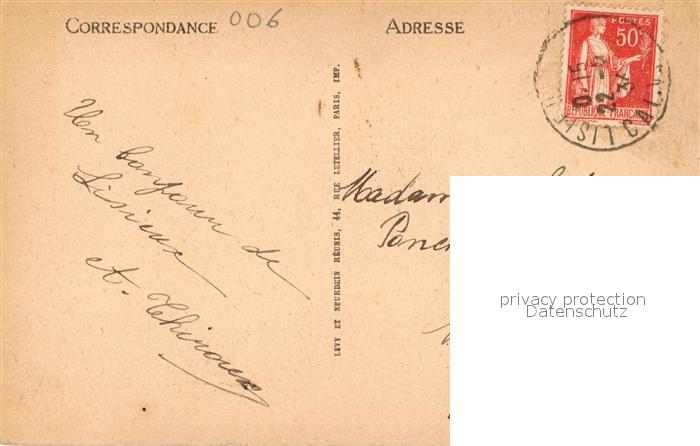 CORRESPONDANCE
006
ADRESSE
POSTES
50c
RÉPUBLIQUE FRANÇAISE
22
LISIEUX
CALV
Un bonjour de
Lisieux
et.
LÉVY ET NEURDEIN RÉUNIS, 44, RUE LETELLIER, PARIS, IMP.
Madam
privacy protection
Datenschutz